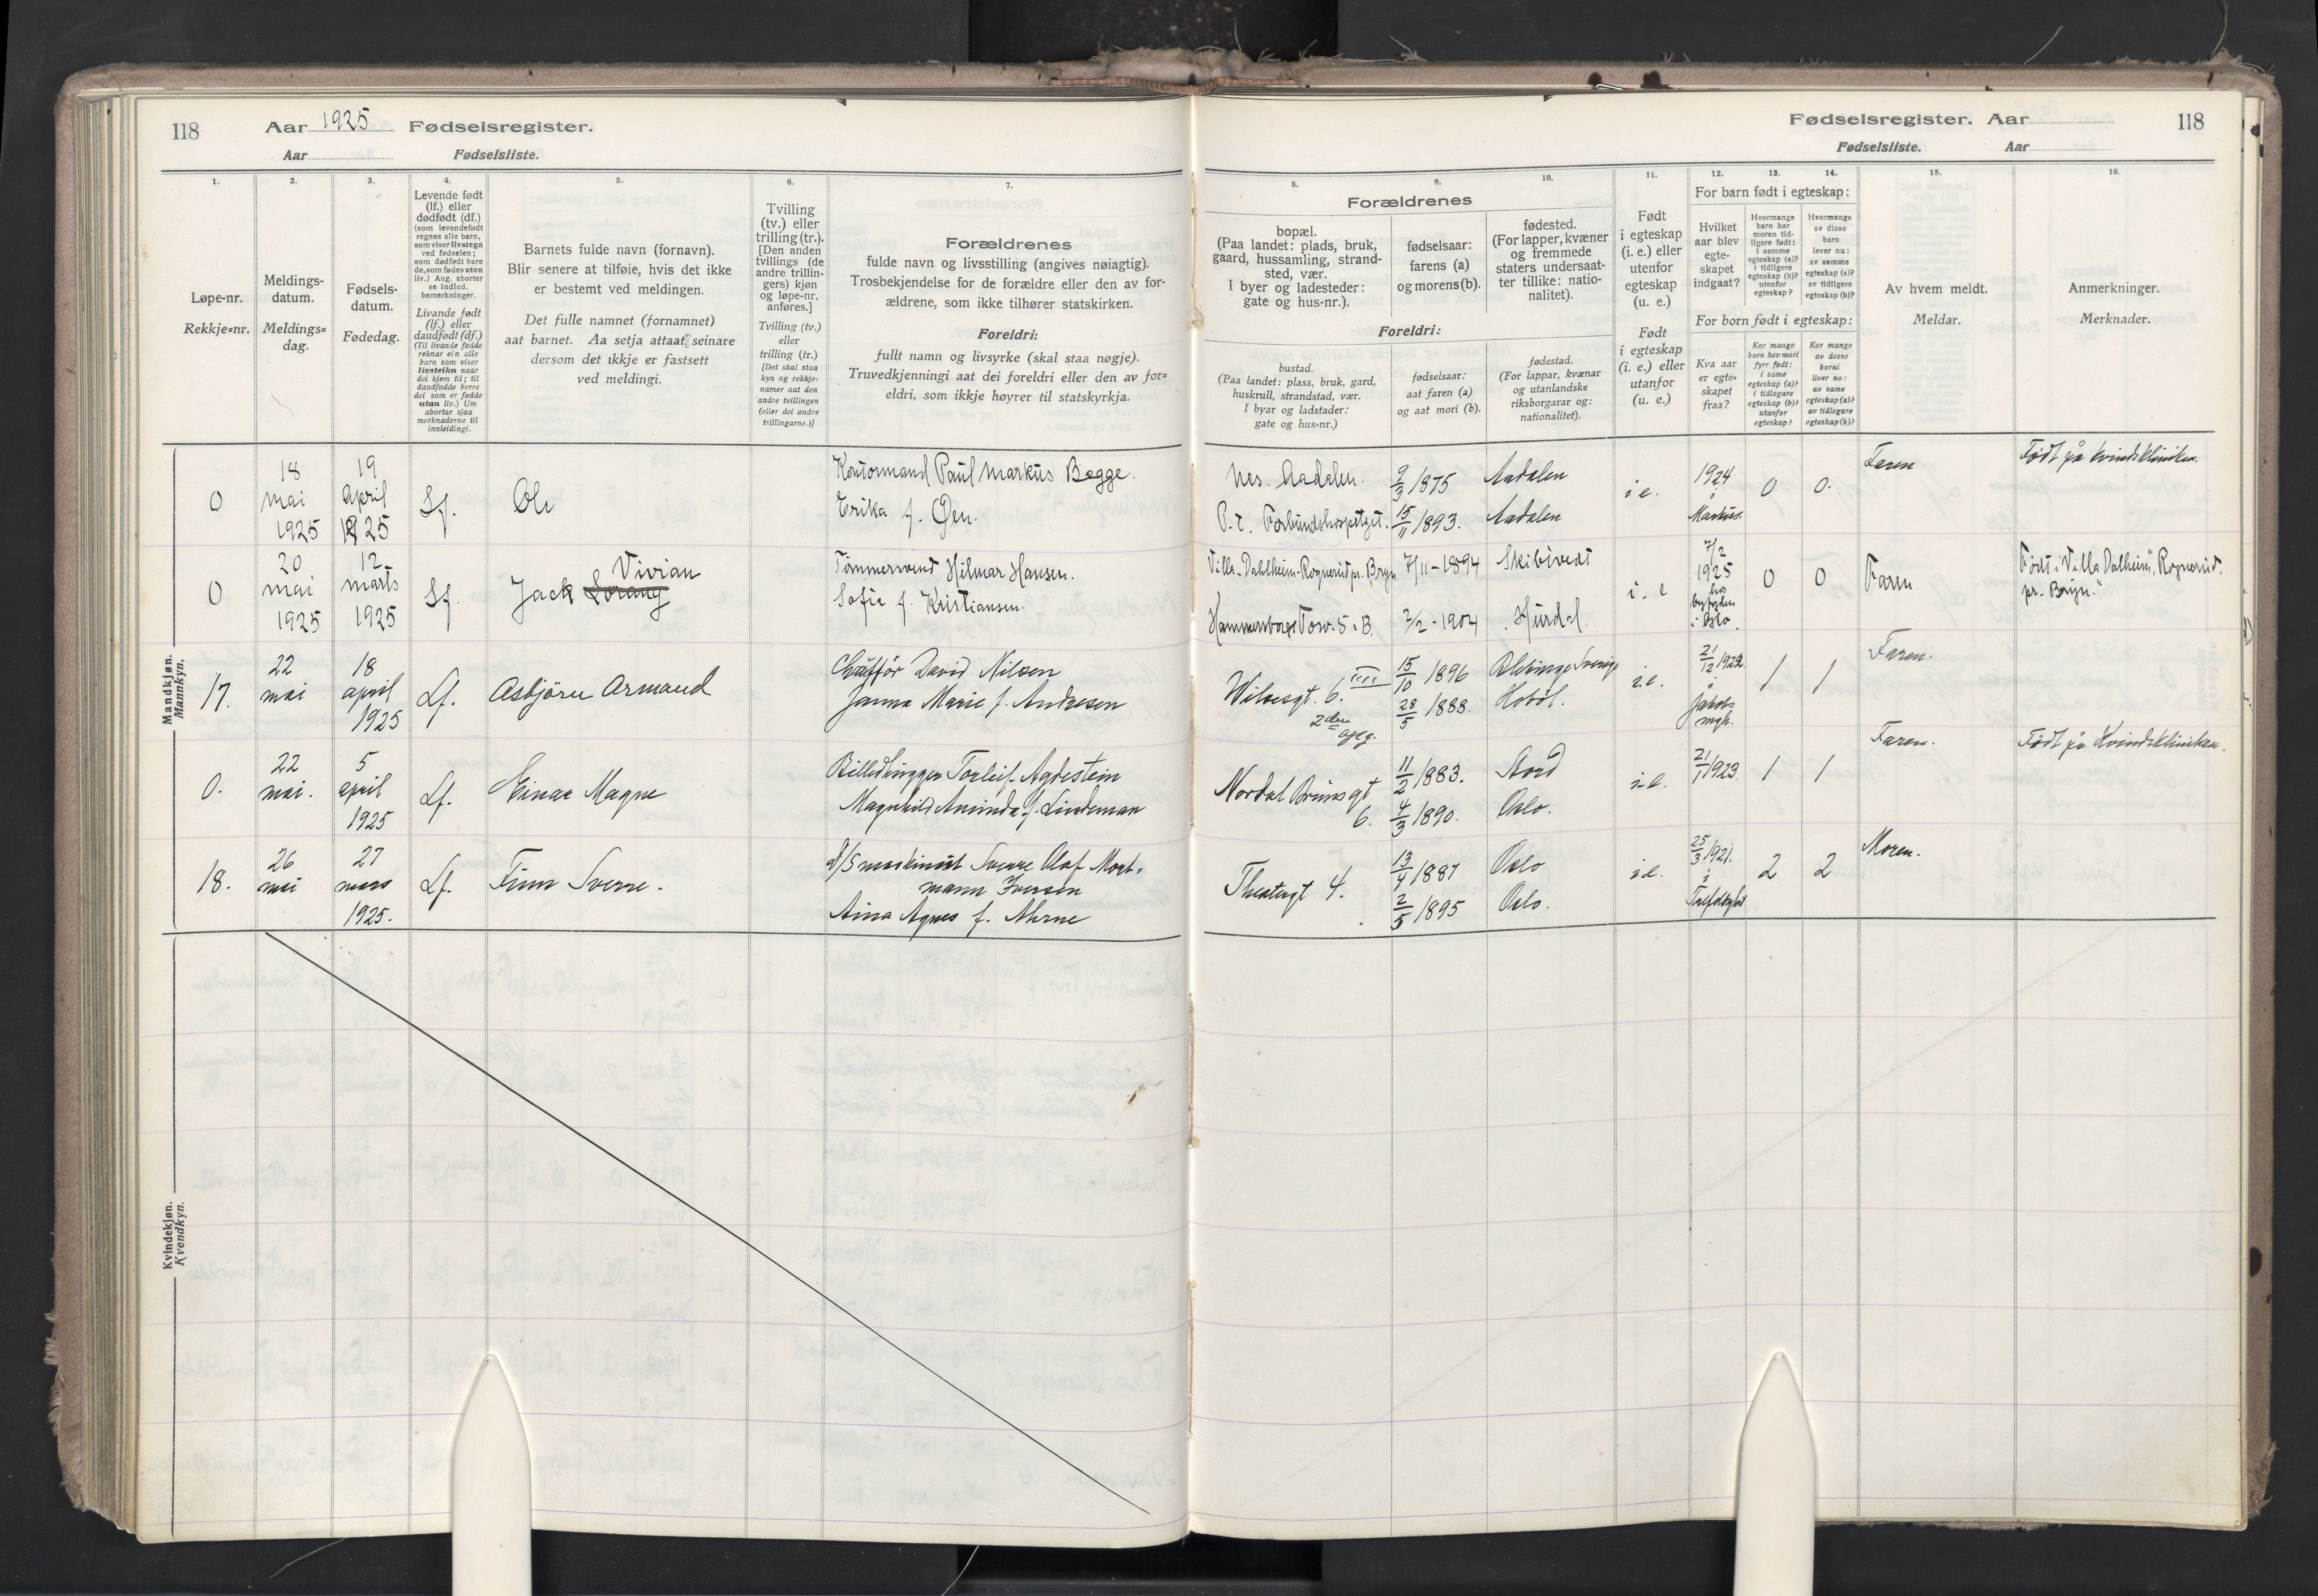 118
Aar 1925 Fødselsregister.
Aar Fødselsliste.
1.
Løpe-nr.
Rekkje=nr.
2.
Meldings-
datum.
Meldings=
dag.
3.
Fødsels-
datum.
Fødedag.
4.
Levende født
(lf.) eller
dødfødt (df.)
(som levendefødt
regnes alle barn,
som viser livstegn
ved fødselen;
som dødfødt bare
de, som fødes uten
liv.) Ang. aborter
se indled.
bemerkninger.
Livande født
(lf.) eller
daudfødt (df.)
(Til livande fødde
reknar ein alle
barn som viser
livsteikn naar
dei kjem til; til
daudfødde berre
dei som er fødde
utan liv.) Um
abortar sjaa
merknaderne til
innleidingi.
5.
Barnets fulde navn (fornavn).
Blir senere at tilføie, hvis det ikke
er bestemt ved meldingen.
Det fulle namnet (fornamnet)
aat barnet. Aa setja attaat seinare
dersom det ikkje er fastsett
ved meldingi.
6.
Tvilling
(tv.) eller
trilling (tr.).
[Den anden
tvillings (de
andre trillin-
gers) kjøn
og løpe-nr.
anføres.]
Tvilling (tv.)
eller
trilling (tr.)
[Det skal staa
kyn og rekkje-
numer aat den
andre tvillingen
(eller dei andre
trillingarne.)]
7.
Forældrenes
fulde navn og livsstilling (angives nøiagtig).
Trosbekjendelse for de forældre eller den av for-
ældrene, som ikke tilhører statskirken.
Foreldri:
fullt namn og livsyrke (skal staa nøgje).
Truvedkjenningi aat dei foreldri eller den av for=
eldri, som ikkje høyrer til statskyrkja.
Mandkjøn.
Mannkyn.
0
18
mai
1925
19
April
1925
Lf.
Ole
Paul Markus Bagge.
Erika f. Øen.
0
20
mai
1925
12
marts
1925
Lf.
Vivian
Jack Lorang
Tømmersvend Hilmar Hansen.
Sofie f. Kristiansen.
17.
22
mai
18
april
1925
Lf.
Asbjörn Armand
Chaufför David Nilsen
Janna Marie f. Andresen
0.
22
mai.
5
april
1925
Lf.
Einar Magne
Billedhugger Torleif Agdestein
Magnhild Aminda f. Lindeman
18.
26
mai
27
mars
1925.
Lf.
Finn Sverre.
d/s maskinist Sverre Olaf Mort=
mann Iversen
Aina Agnes f. Ahrne
Kvindekjøn.
Kvendkyn.
Fødselsregister. Aar 118
Fødselsliste. Aar
8.
Forældrenes
bopæl.
(Paa landet: plads, bruk,
gaard, hussamling, strand-
sted, vær.
I byer og ladesteder:
gate og hus-nr.).
Foreldri:
bustad.
(Paa landet: plass, bruk, gard,
huskrull, strandstad, vær.
I byar og ladstader:
gate og hus=nr.)
9.
fødselsaar:
farens (a)
og morens (b).
fødselsaar:
aat faren (a)
og aat mori (b).
10.
fødested.
(For lapper, kvæner
og fremmede
staters undersaat-
ter tillike: natio-
nalitet).
fødestad.
(For lappar, kvænar
og utanlandske
riksborgarar og:
nationalitet).
11.
Født
i egteskap
(i. e.) eller
utenfor
egteskap
(u. e.)
Født
i egteskap
(i. e.) eller
utanfor
(u. e.)
12. 13. 14.
For barn født i egteskap:
Hvilket
aar blev
egte-
skapet
indgaat?
Hvormange
barn har
moren tid-
ligere født:
i samme
egteskap (a)?
i tidligere
egteskap (b)?
utenfor
egteskap?
Hvormange
av disse
barn
lever nu:
av samme
egteskap (a)?
av tidligere
egteskap (b)?
For born født i egteskap:
Kva aar
er egte=
skapet
fraa?
Kor mange
born hev mori
fyrr født:
i same
egteskap (a)?
i tidlegare
egteskap (b)?
utanfor
egteskap?
Kor mange
av desse
borni
liver no:
av same
egteskap (a)?
av tidlegare
egteskap (b)?
15.
Av hvem meldt.
Meldar.
16.
Anmerkninger.
Merknader.
Nes. Aadalen.
9/3 1875
Aadalen
i e.
1924
i
Markus.
0
0.
Faren
Født på kvindeklinikken.
P.t.
15/11 1893.
Aadalen
Villa Dahlheim-Rognerud pr. Bryn
7/11-1894
Skibtvedt
i. e
7/2
1925
hos
byfogden
i Oslo.
0
0
Faren.
Født i Villa Dalheim", Rognerud.
pr. Bryn."
Hammersborg Torv. 5. B.
2/2-1904
Hurdal
Wilsesgt. 6. IIII
2den
opg.
15/10 1896
Blekinge Sverige
i.e.
21/12 1922
i
Jakobs
mgh.
1
1
Faren.
28/5 1888.
Hobøl.
Nordal Brunsgt
6.
11/2 1883.
Stord
i.e.
21/1 1923.
1
1
Faren.
Født på Kvindeklinikken.
4/3 1890.
Oslo.
Theatergt 4.
13/4 1887
Oslo
i.e.
25/3 1921.
i
2
2
Moren.
2/5 1895
Oslo.